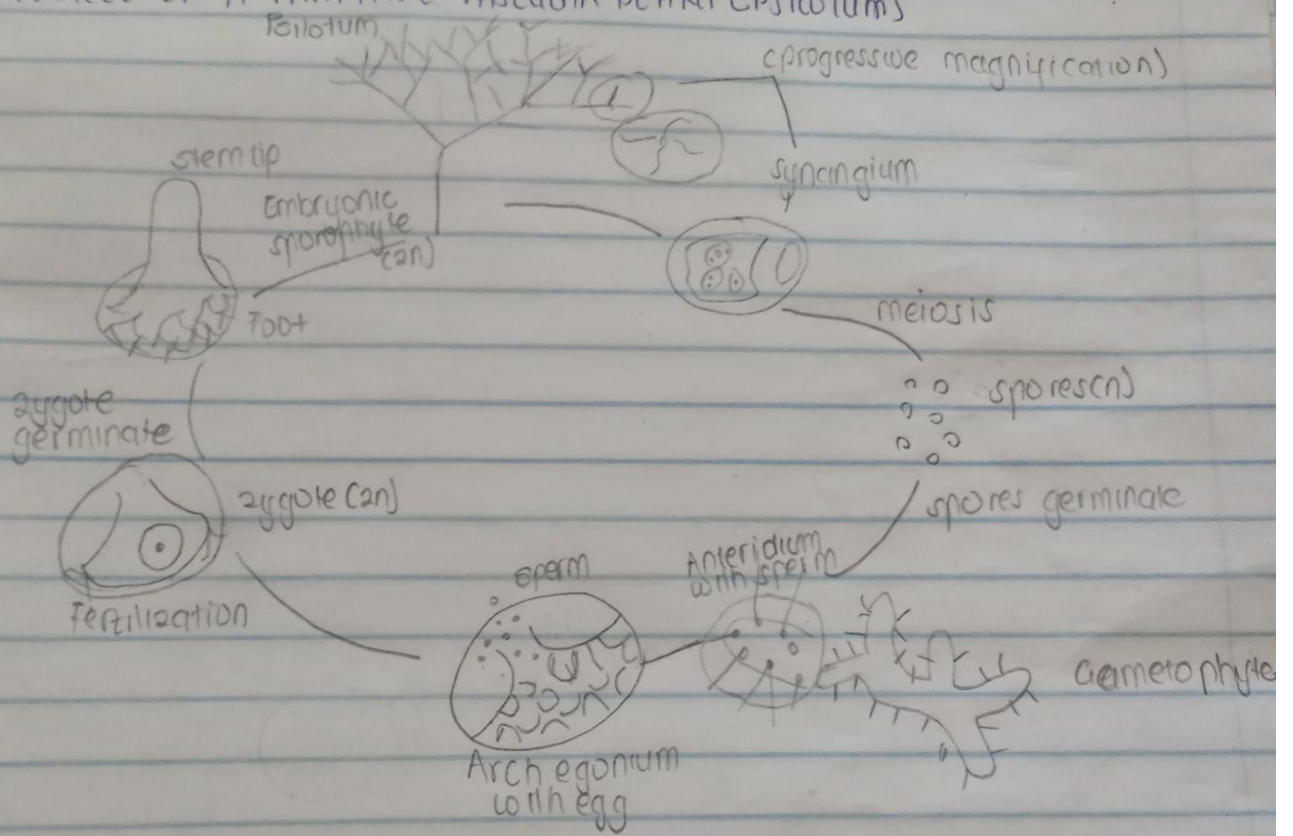 Psilotum
(progressive magnification)
synangium
stem tip
Embryonic
sporophyte
(2n)
Foot
meiosis
spores(n)
zygote
germinate
zygote (2n)
spores germinate
Fertilization
sperm
Anteridium
with sperm
Gametophyte
Archegonium
with egg